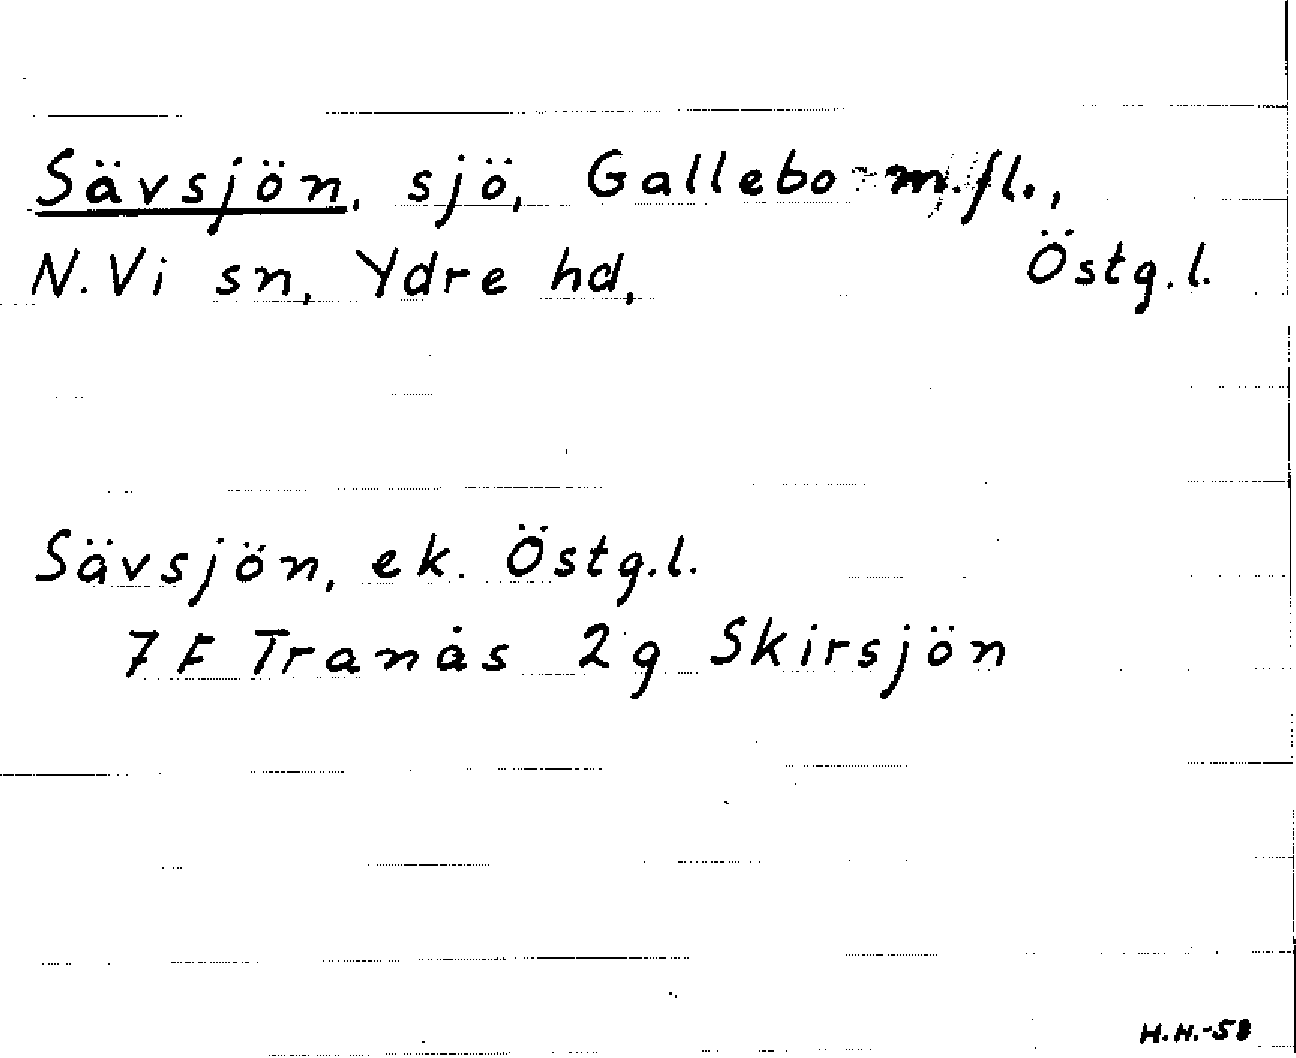 Sävsjön, sjö, Gallebo m.fl.,
N. Vi sn, Ydre hd, Östg.l.
Sävsjön, ek. Östg.l.
7 F Tranås 2 g Skirsjön
H.H.-58